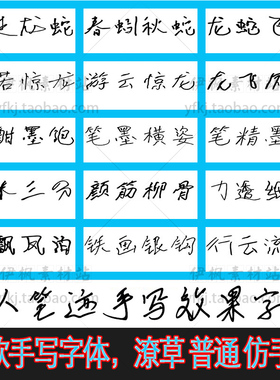 走龙蛇 春蚓秋蛇 龙蛇飞
若惊龙 游云惊龙 龙飞凤
酣墨饱 笔墨横姿 笔精墨
木三分 颜筋柳骨 力透纸
飘风泊 铁画银钩 行云流
人笔迹手写效果字
款手写字体，潦草 普通 仿手
伊枫素材站
yfkj.taobao.com